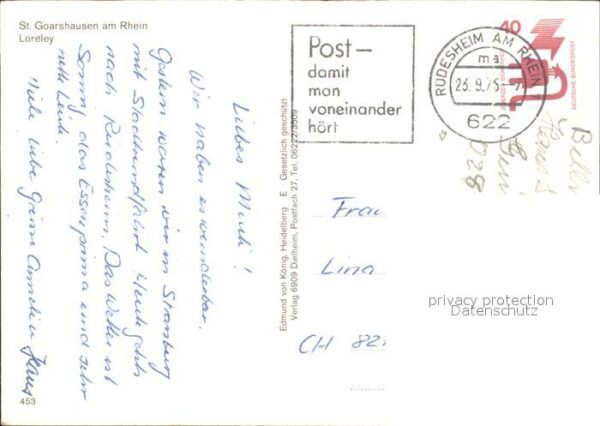 St. Goarshausen am Rhein
Loreley
Liebes Mucki!
Wir haben es wunderbar.
Gestern waren wir in Strassburg
mit Stadtrundfahrt. Heute gehts
nach Rüdesheim. Das Wetter ist
Sonnig, das Essen prima und sehr
nette Leute.
Viele liebe Grüsse
Hans
453
Edmund von König, Heidelberg E Gesetzlich geschützt
Verlag 6909 Dielheim, Postfach 27, Tel. 06222/3509
Post–
damit
man
voneinander
hört
RÜDESHEIM AM RHEIN
ma
23.9.75
622
40
DEUTSCHE BUNDESPOST
Frau
Lina
CH 82
privacy protection
Datenschutz